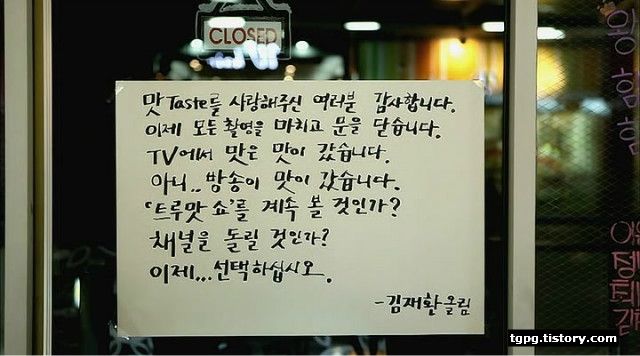 CLOSED
맛 Taste를 사랑해주신 여러분 감사합니다.
이제 모든 촬영을 마치고 문을 닫습니다.
TV에서 맛은 맛이 갔습니다.
아니.. 방송이 맛이 갔습니다.
'트루맛 쇼'를 계속 볼 것인가?
채널을 돌릴 것인가?
이제...선택하십시오.
-김재환 올림
tgpg.tistory.com